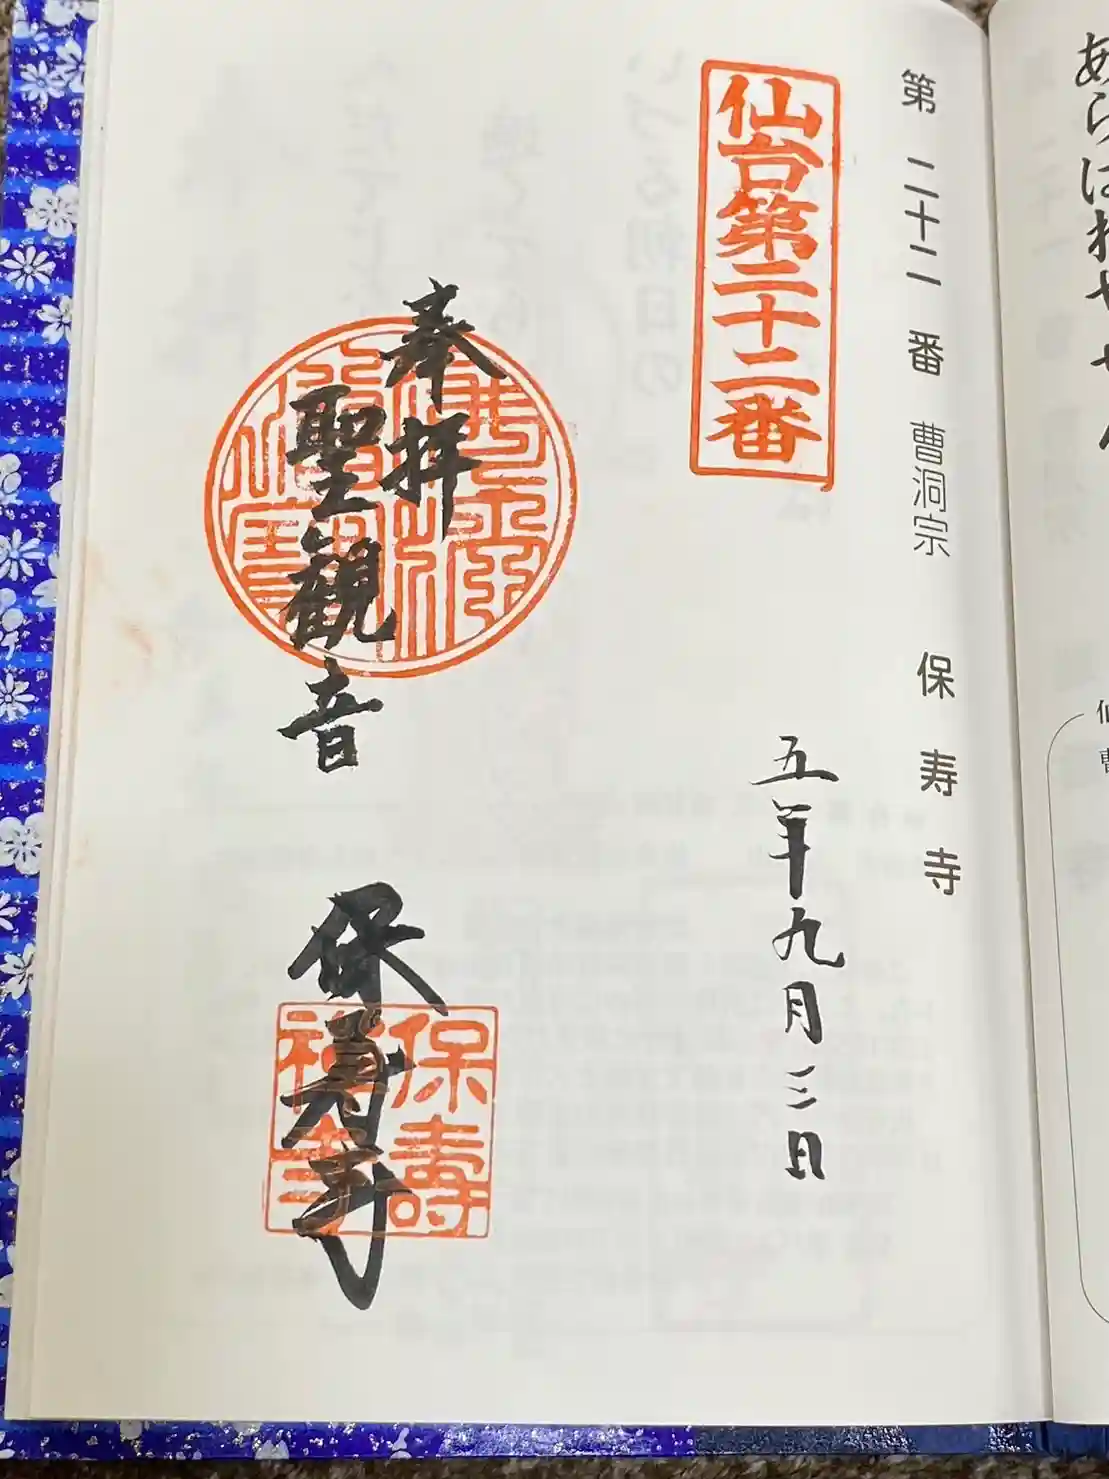 あらはれやせん
第二十二番 曹洞宗 保寿寺
仙台第二十二番
五年九月三日
奉拝
聖観音
保寿寺
保壽